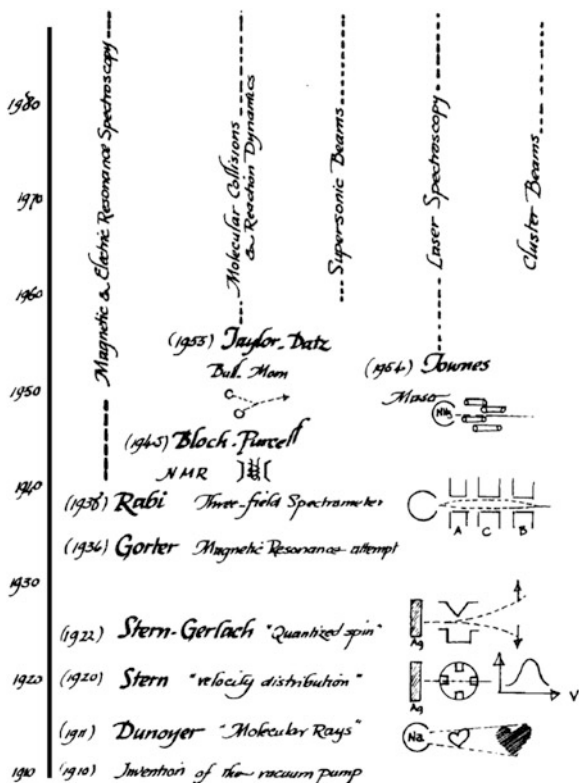 1980
1970
1960
1950
1940
1930
1920
1910
Magnetic & Electric Resonance Spectroscopy
Molecular Collisions
& Reaction Dynamics
Supersonic Beams
Laser Spectroscopy
Cluster Beams
(1955) Taylor-Datz
Mom
(1954) Townes
Maser
NH3
(1945) Bloch-Purcell
NMR
(1938) Rabi Three-field Spectrometer
A C B
(1936) Gorter Magnetic Resonance attempt
(1922) Stern-Gerlach "Quantized spin"
Ag
(1920) Stern "velocity distribution"
Ag
V
(1911) Dunoyer "Molecular Rays"
Na
(1910) Invention of the vacuum pump